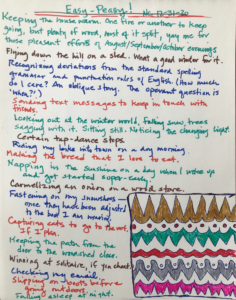 Easy-Peasy! NC 12-31-20
Keeping the house warm. One fire or another to keep
going, but plenty of wood, most of it split, yay me for
those pleasant efforts of August/September/October evenings
Flying down the hill on a sled. What a good winter for it.
Recognizing deviations from the standard spelling
grammar and punctuation rules of English. (How much
do I care? An oblique story. The operant question is
"when?")
Sending text messages to keep in touch with
friends.
Looking out at the winter world, falling snow, trees
sagging with it. Sitting still. Noticing the changing light.
Certain tap-dance steps
Riding my bike into town on a day morning
Making the bread that I love to eat.
Napping to the Sonthina on a day when I woke up
and got started super-early.
Caramelizing an onion on a wood stove.
Fastening on my snowshoes
one they had been adjusted
to the boot I am wearing.
Capturing cats to go to the vet,
if I plan.
Keeping the path from the
door to the woodshed clear.
Winning at solitaire, if you cheat.
Checking my email.
Slipping on boots before
going outdoors.
Falling asleep at night.